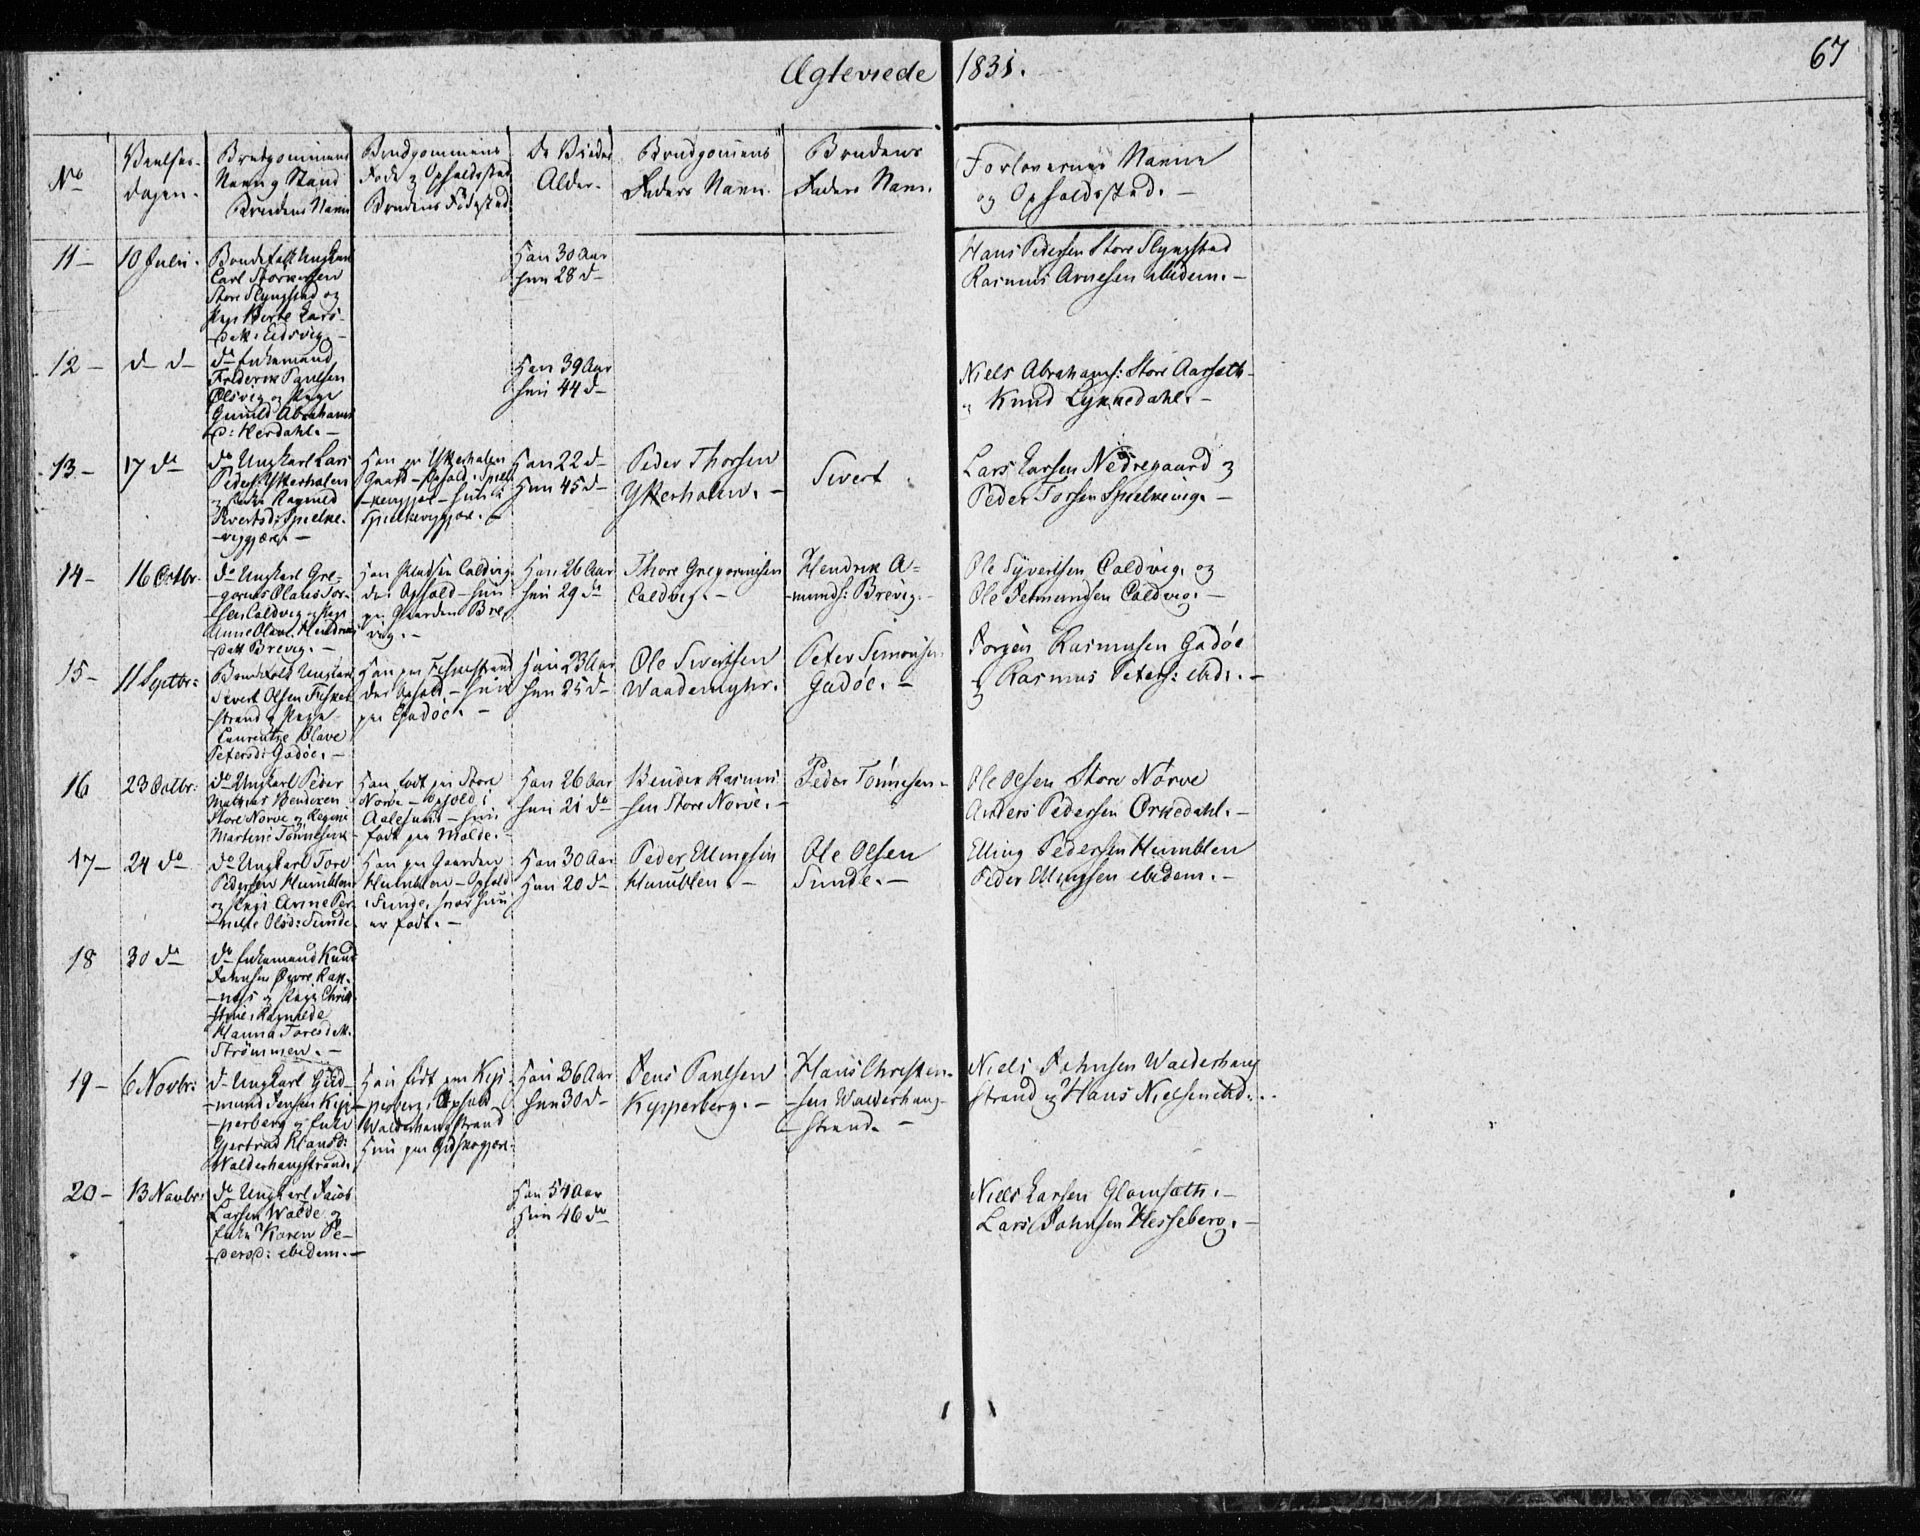 Ægteviede 1831.
67
No
Vielses-
dagen.
Brudgommens
Navn og Stand
Brudens Navn
Brudgommens
Føde og Opholdssted
Brudens Fødested
De Viedes
Alder.
Brudgomens
Faders Navn.
Brudens
Faders Navn.
Forlovernes Navne
og Opholdssted. —
11 —
10 Julii.
Bondefolk Ungkarl
Carl
Store Slyngstad og
Pige Berte Lars-
datt: Eidsvig. —
Han 30 Aar
hun 28 d—
Hans Pedersen Store Slyngstad
Rasmus Arnesen ibidem. —
12 —
d— d—
do Enkemand
Frederik Paulsen
Ølsvig og Pige
Gunild Abrahams
D: Herdahl. —
Han 39 Aar
hun 44 d—
Niels Abrahams: Store Aarsæth —
" Knud Lyknedahl. —
13 —
17 do
do Ungkarl Lars
Peders: Ytterholen
og Enke Ragnild
Sivertsd: Spielke-
viggjære —
Han paa Ytterholen
Gaard — Ophold Spiel-
keviggjær — hun
Spielkeviggjær. —
Han 22 d—
Hun 45 d—
Peder Thorsen
Ytterholen. —
Sivert
Lars Larsen Nedregaard og
Peder Torsen Spielkevig. —
14 —
16 Octbr.
do Ungkarl Gre-
gorius Olaus Tor-
sen Caldvig og Pige
Anne Olave Hendriks
datt Brevig. —
Han Pladsen Caldvig
der Ophold — hun
paa Gaarden Bre
vig. —
Han 26 Aar
hun 29 do
Thore Gregoriussen
Caldvig. —
Hendrik A-
munds: Brevig. —
Ole Syvertsen Caldvig. og
Ole Jetmundsen Caldvig. —
15 —
11 Septbr:
Bondefolk Ungkarl
Sivert Olsen Fisker-
strand og Pige
Laurentze Olave
Petersd: Gadøe. —
Han paa Fiskerstrand
der Ophold — hun
paa Gadøe. —
Han 23 Aar
hun 25 d—
Ole Sivertsen
Waademyhr.
Peter Simonsen
Gadøe. —
Jørgen Rasmusen Gadøe
og Rasmus Peters: ibid: —
16
23 Octbr:
do Ungkarl Peder
Mathias Bendixen
Store Nørve og Regine
Martine Tønnesen —
Han født paa Store
Nørve — Ophold i
Aalesund — hun
født paa Molde. —
Han 26 Aar
hun 21 do
Bendix Rasmus-
sen Store Nørve. —
Peder Tønnesen —
Ole Olsen Store Nørve
Anders Pedersen Ørkedahl. —
17 —
24 do
do Ungkarl Tore
Pedersen Humblen
og Pige Anne Per-
nille Olsd: Sunde.
Han paa Gaarden
Humblen — Ophold
i Sunde, hvor hun
er født. —
Han 30 Aar
Hun 20 d—
Peder Ellingsen
Humblen. —
Ole Olsen
Sunde. —
Elling Pedersen Humblen
Peder Ellingsen ibidem. —
18
30 do
do Enkemand Knud
Johnsen Øvre Rap-
næs og Pige Chri-
stine Ragnilde
Hanna Toresdatt.
Strømmen. —
19 —
6 Novbr:
do Ungkarl Gud-
mund Jensen Kip-
perberg og Enke
Gjertrud Klausd:
Walderhaugstrand.
Han født paa Kip-
perberg, Ophold
Walderhaugstrand
Hun paa Gidskegjær.
Han 36 Aar
Hun 30 d—
Jens Paulsen
Kypperberg. —
Hans Christen-
sen Walderhaug-
strand. —
Niels Johnsen Walderhaug
strand og Hans Nielsen ibid. .
20 —
13 Novbr:
do Ungkarl Jacob
Larsen Walde og
Enke Karen Pe-
dersd: ibidem. —
Han 54 Aar
Hun 46 do
Niels Larsen Glomsæth. —
Lars Johnsen Hesseberg. —